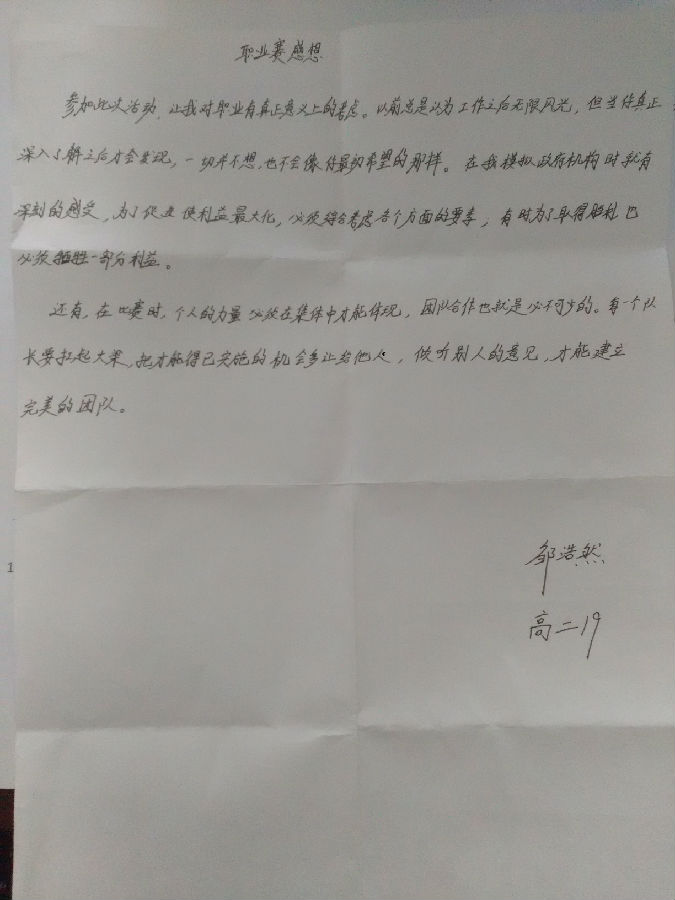 职业赛感想
参加此次活动，让我对职业有真正意义上的考虑。以前总是认为工作之后无限风光，但当你真正
深入了解之后才会发现，一切并不想，也不会像你最初希望的那样。在我模拟政府机构时就有
深刻的感受，为了促进使利益最大化，必须综合考虑各个方面的要素；有时为了取得胜利也
必须牺牲一部分利益。
还有，在比赛时，个人的力量必须在集体中才能体现，团队合作也就是必不可少的。每一个队
长要扛起大梁，把才能得已实施的机会多让给他人，倾听别人的意见，才能建立
完美的团队。
邹浩然
高二19
1